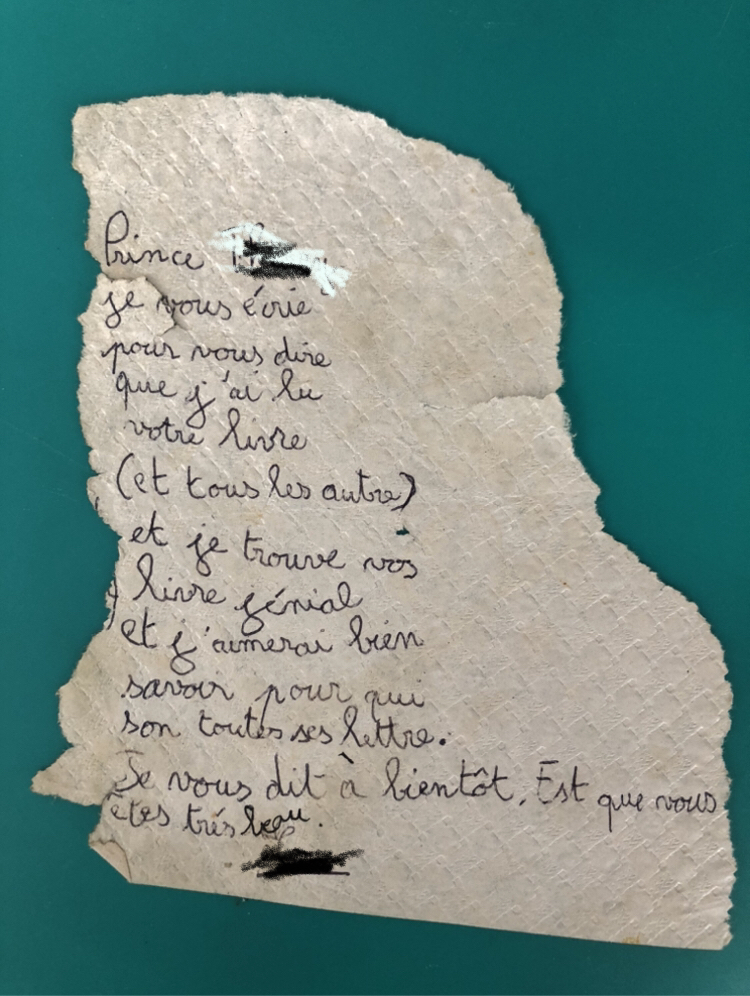 Prince
je vous écrie
pour vous dire
que j'ai lu
votre livre
(et tous les autre)
et je trouve vos
livre génial
et j'aimerai bien
savoir pour qui
son toutes ses lettre.
Je vous dit à bientôt. Est que vous
êtes trés beau.